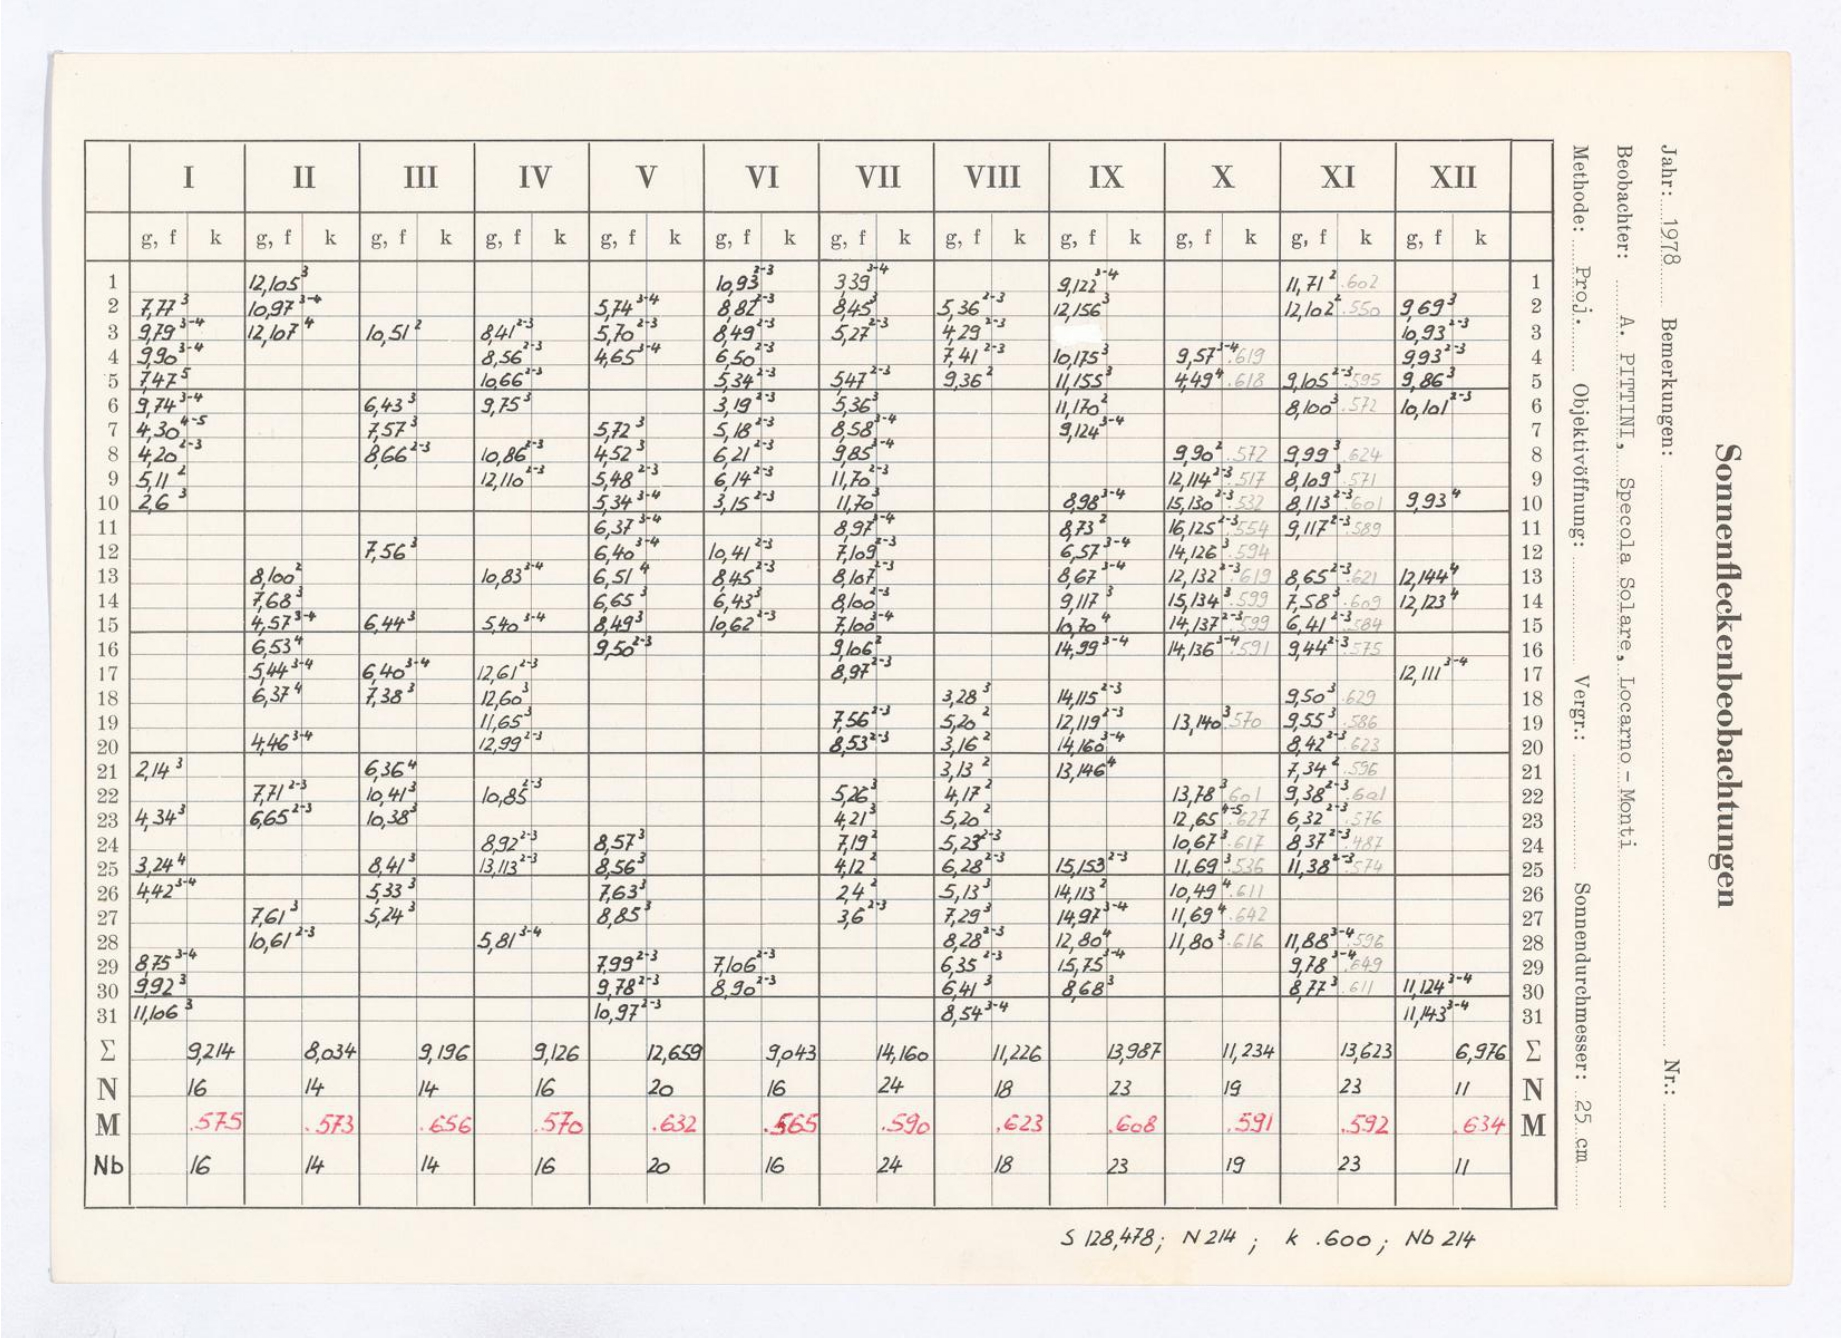 I II III IV V VI VII VIII IX X XI XII
g, f k g, f k g, f k g, f k g, f k g, f k g, f k g, f k g, f k g, f k g, f k g, f k
1 12,105³ 10,93²⁻³ 3,39³⁻⁴ 9,122³⁻⁴ 11,71² .602 1
2 7,77³ 10,97³⁻⁴ 5,74³⁻⁴ 8,82²⁻³ 8,45³ 5,36²⁻³ 12,156³ 12,102² .550 9,69³ 2
3 9,79³⁻⁴ 12,107⁴ 10,51² 8,41²⁻³ 5,70²⁻³ 8,49²⁻³ 5,27²⁻³ 4,29²⁻³ 10,93²⁻³ 3
4 9,90³⁻⁴ 8,56²⁻³ 4,65³⁻⁴ 6,50²⁻³ 7,41²⁻³ 10,175³ 9,57³⁻⁴ .619 9,93²⁻³ 4
5 7,47⁵ 10,66²⁻³ 5,34²⁻³ 5,47²⁻³ 9,36² 11,155³ 4,49⁴ .618 9,105²⁻³ .595 9,86³ 5
6 9,74³⁻⁴ 6,43³ 9,75³ 3,19²⁻³ 5,36³ 11,170² 8,100³ .572 10,101²⁻³ 6
7 4,30⁴⁻⁵ 7,57³ 5,72³ 5,18²⁻³ 8,58³⁻⁴ 9,124³⁻⁴ 7
8 4,20²⁻³ 8,66²⁻³ 10,86²⁻³ 4,52³ 6,21²⁻³ 9,85³⁻⁴ 9,90² .572 9,99³ .624 8
9 5,11² 12,110²⁻³ 5,48²⁻³ 6,14²⁻³ 11,70²⁻³ 12,114²⁻³ .517 8,109³ .571 9
10 2,6³ 5,34³⁻⁴ 3,15²⁻³ 11,70³ 8,98³⁻⁴ 15,130²⁻³ .532 8,113²⁻³ .601 9,93⁴ 10
11 6,37³⁻⁴ 8,97³⁻⁴ 8,73² 16,125²⁻³ .554 9,117²⁻³ .589 11
12 7,56³ 6,40³⁻⁴ 10,41²⁻³ 7,109²⁻³ 6,57³⁻⁴ 14,126³ .594 12
13 8,100² 10,83³⁻⁴ 6,51⁴ 8,45²⁻³ 8,107²⁻³ 8,67³⁻⁴ 12,132²⁻³ .619 8,65²⁻³ .621 12,144⁴ 13
14 7,68³ 6,65³ 6,43³ 8,100²⁻³ 9,117³ 15,134³ .599 7,58³ .609 12,123⁴ 14
15 4,57³⁻⁴ 6,44³ 5,40³⁻⁴ 8,49³ 10,62²⁻³ 7,100³⁻⁴ 10,70⁴ 14,137²⁻³ .599 6,41²⁻³ .584 15
16 6,53⁴ 9,50²⁻³ 9,106² 14,99³⁻⁴ 14,136³⁻⁴ .591 9,44²⁻³ .575 16
17 5,44³⁻⁴ 6,40³⁻⁴ 12,61²⁻³ 8,97²⁻³ 12,111³⁻⁴ 17
18 6,37⁴ 7,38³ 12,60³ 3,28³ 14,115²⁻³ 9,50³ .629 18
19 11,65³ 7,56²⁻³ 5,20² 12,119²⁻³ 13,140³ .570 9,55³ .586 19
20 4,46³⁻⁴ 12,99²⁻³ 8,53²⁻³ 3,16² 14,160³⁻⁴ 8,42²⁻³ .623 20
21 2,14³ 6,36⁴ 3,13² 13,146⁴ 7,34² .596 21
22 7,71²⁻³ 10,41³ 10,85²⁻³ 5,26³ 4,17² 13,78³ .601 9,38²⁻³ .601 22
23 4,34³ 6,65²⁻³ 10,38³ 4,21³ 5,20² 12,65⁴⁻⁵ .627 6,32²⁻³ .576 23
24 8,92²⁻³ 8,57³ 7,19² 5,23²⁻³ 10,67³ .617 8,37²⁻³ .487 24
25 3,24⁴ 8,41³ 13,113²⁻³ 8,56³ 4,12² 6,28²⁻³ 15,153²⁻³ 11,69³ .536 11,38²⁻³ .574 25
26 4,42³⁻⁴ 5,33³ 7,63³ 2,4² 5,13³ 14,113² 10,49⁴ .611 26
27 7,61³ 5,24³ 8,85³ 3,6²⁻³ 7,29³ 14,97³⁻⁴ 11,69⁴ .642 27
28 10,61²⁻³ 5,81³⁻⁴ 8,28²⁻³ 12,80⁴ 11,80³ .616 11,88³⁻⁴ .596 28
29 8,75³⁻⁴ 7,99²⁻³ 7,106²⁻³ 6,35²⁻³ 15,75³⁻⁴ 9,78³⁻⁴ .649 29
30 9,92³ 9,78²⁻³ 8,90²⁻³ 6,41³ 8,68³ 8,77³ .611 11,124³⁻⁴ 30
31 11,106³ 10,97²⁻³ 8,54³⁻⁴ 11,143³⁻⁴ 31
Σ 9,214 8,034 9,196 9,126 12,659 9,043 14,160 11,226 13,987 11,234 13,623 6,976 Σ
N 16 14 14 16 20 16 24 18 23 19 23 11 N
M .575 .573 .656 .570 .632 .565 .590 .623 .608 .591 .592 .634 M
Nb 16 14 14 16 20 16 24 18 23 19 23 11
S 128,478; N 214; k .600; Nb 214
Sonnenfleckenbeobachtungen
Jahr: 1978 Bemerkungen: Nr.:
Beobachter: A. PITTINI, Specola Solare, Locarno-Monti
Methode: Proj. Objektivöffnung: Vergr.: Sonnendurchmesser: 25 cm